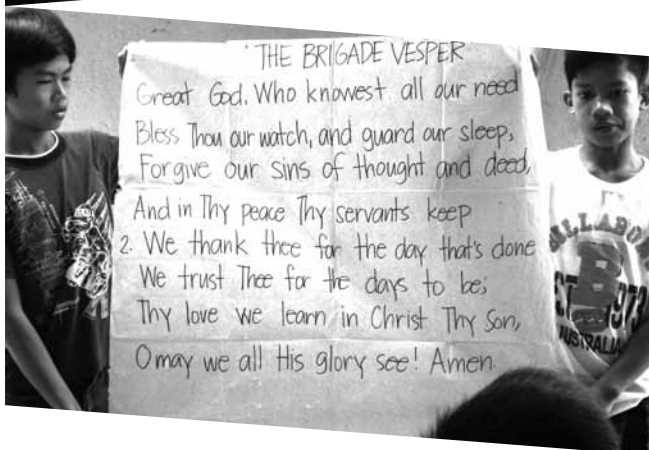 THE BRIGADE VESPER
Great God, Who knowest all our need
Bless Thou our watch, and guard our sleep,
Forgive our sins of thought and deed,
And in Thy peace Thy servants keep
2. We thank thee for the day that's done
We trust Thee for the days to be;
Thy love we learn in Christ Thy Son,
O may we all His glory see! Amen
BILLABO
1973
AUSTRALIA